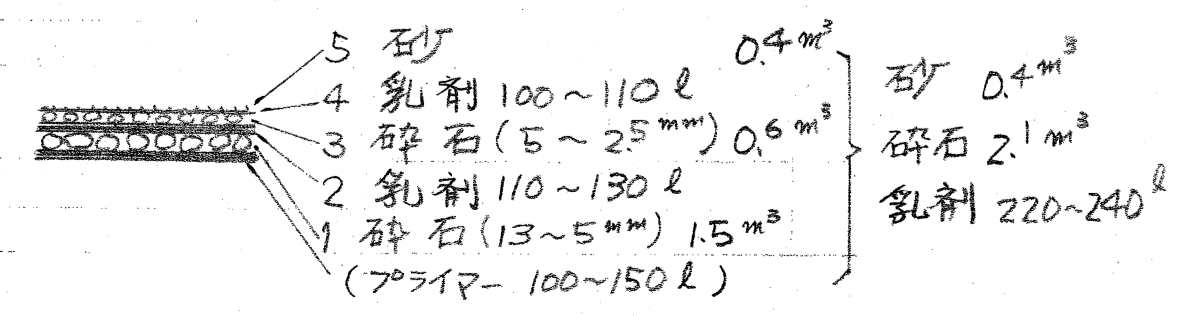 5 砂 0.4m³
4 乳剤 100～110ℓ
3 砕石(5～2.5mm) 0.6m³
2 乳剤 110～130ℓ
1 砕石(13～5mm) 1.5m³
(プライマー 100～150ℓ)
砂 0.4m³
砕石 2.1m³
乳剤 220～240ℓ